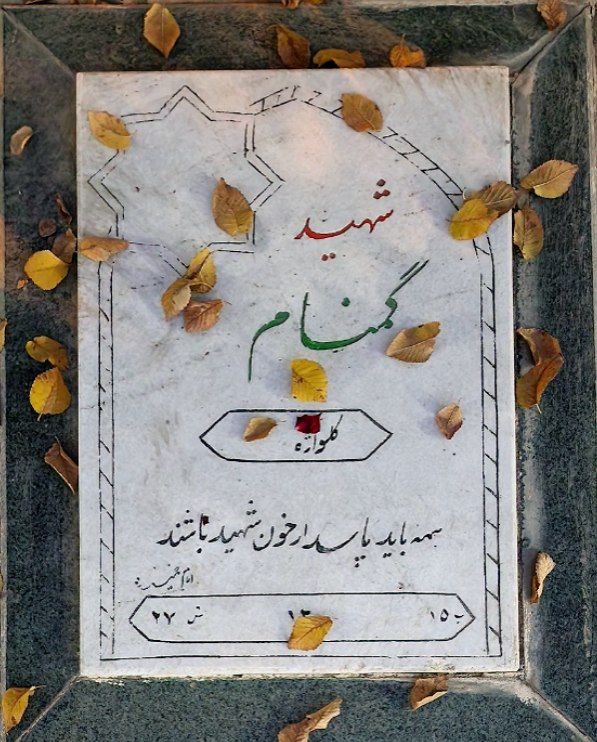 شهید
گمنام
همه باید پاسدار خون شهید باشند
امام خمینی ره
ب ۱۵ ۱۲ ش ۲۷